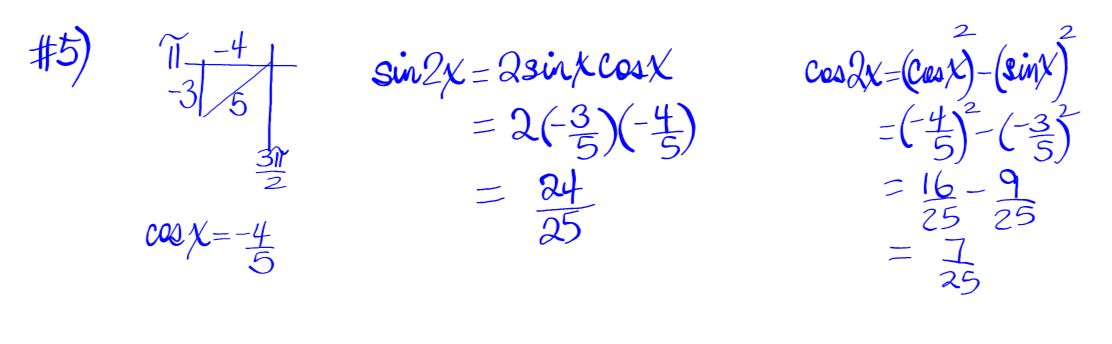 #5)
π -4
-3 5
3π/2
cos x = -4/5
sin2x = 2sinx cosx
= 2(-3/5)(-4/5)
= 24/25
cos2x = (cosx)² - (sinx)²
= (-4/5)² - (-3/5)²
= 16/25 - 9/25
= 7/25